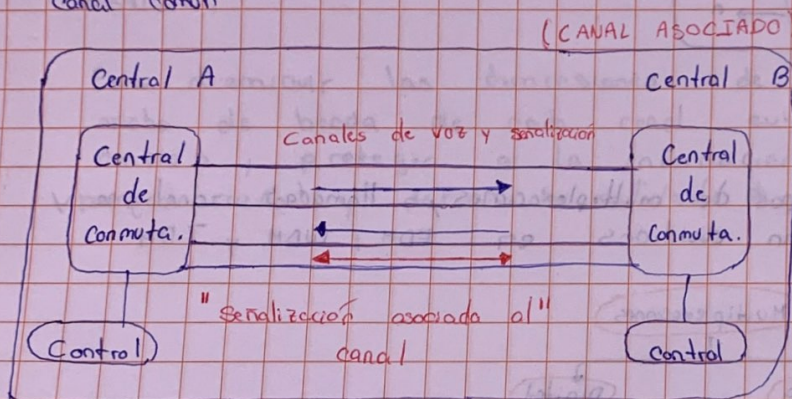 Canal
(CANAL ASOCIADO
Central A
Central B
Canales de voz y señalización
Central
de
Conmuta.
Central
de
Conmuta.
"Señalización asociada al"
canal
Control
Control